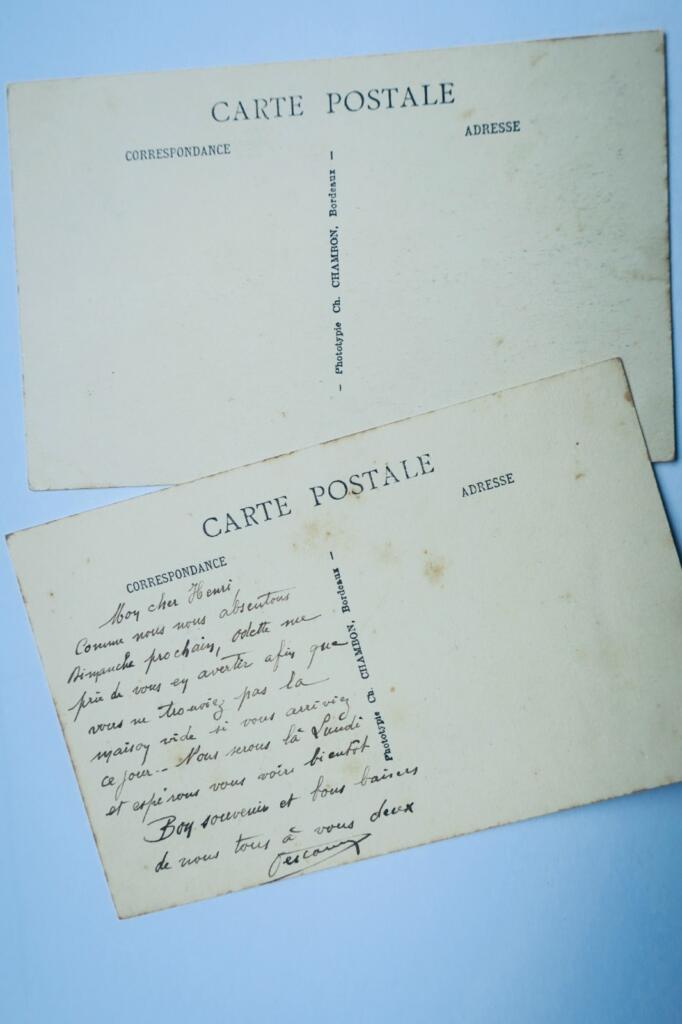 CARTE POSTALE
CORRESPONDANCE
ADRESSE
– Phototypie Ch. CHAMBON, Bordeaux –
CARTE POSTALE
CORRESPONDANCE
ADRESSE
– Phototypie Ch. CHAMBON, Bordeaux –
Mon cher Henri,
Comme nous nous absentons
Dimanche prochain, Odette me
prie de vous en avertir afin que
vous ne trouviez pas la
maison vide si vous arriviez
ce jour.- Nous serons là Lundi
et espérons vous voir bientôt
Bon souvenir et bons baisers
de nous tous à vous deux